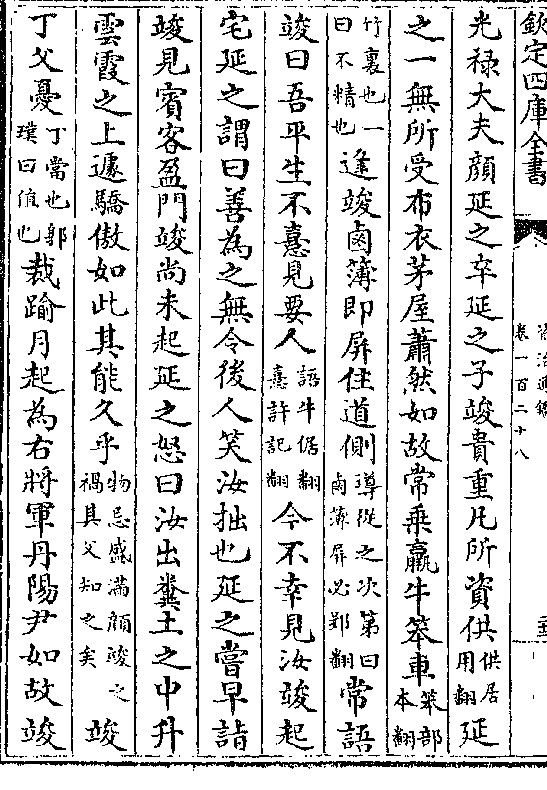 欽定四庫全書
資治通鑑
卷一百二十八
光禄大夫顔延之卒延之子竣貴重凡所資供供居用翻延
之一無所受布衣茅屋蕭然如故常乘羸牛笨車笨部本翻
竹裏也一曰不精也逢竣鹵簿即屏住道側導從之次第曰鹵簿屏必郢翻常語
竣曰吾平生不憙見要人語牛倨翻憙許記翻今不幸見汝竣起
宅延之謂曰善為之無令後人笑汝拙也延之嘗早詣
竣見賓客盈門竣尚未起延之怒曰汝出糞土之中升
雲霞之上遽驕傲如此其能久乎物忌盛滿顔竣之禍其父知之矣竣
丁父憂丁當也郭璞曰值也裁踰月起為右將軍丹陽尹如故竣